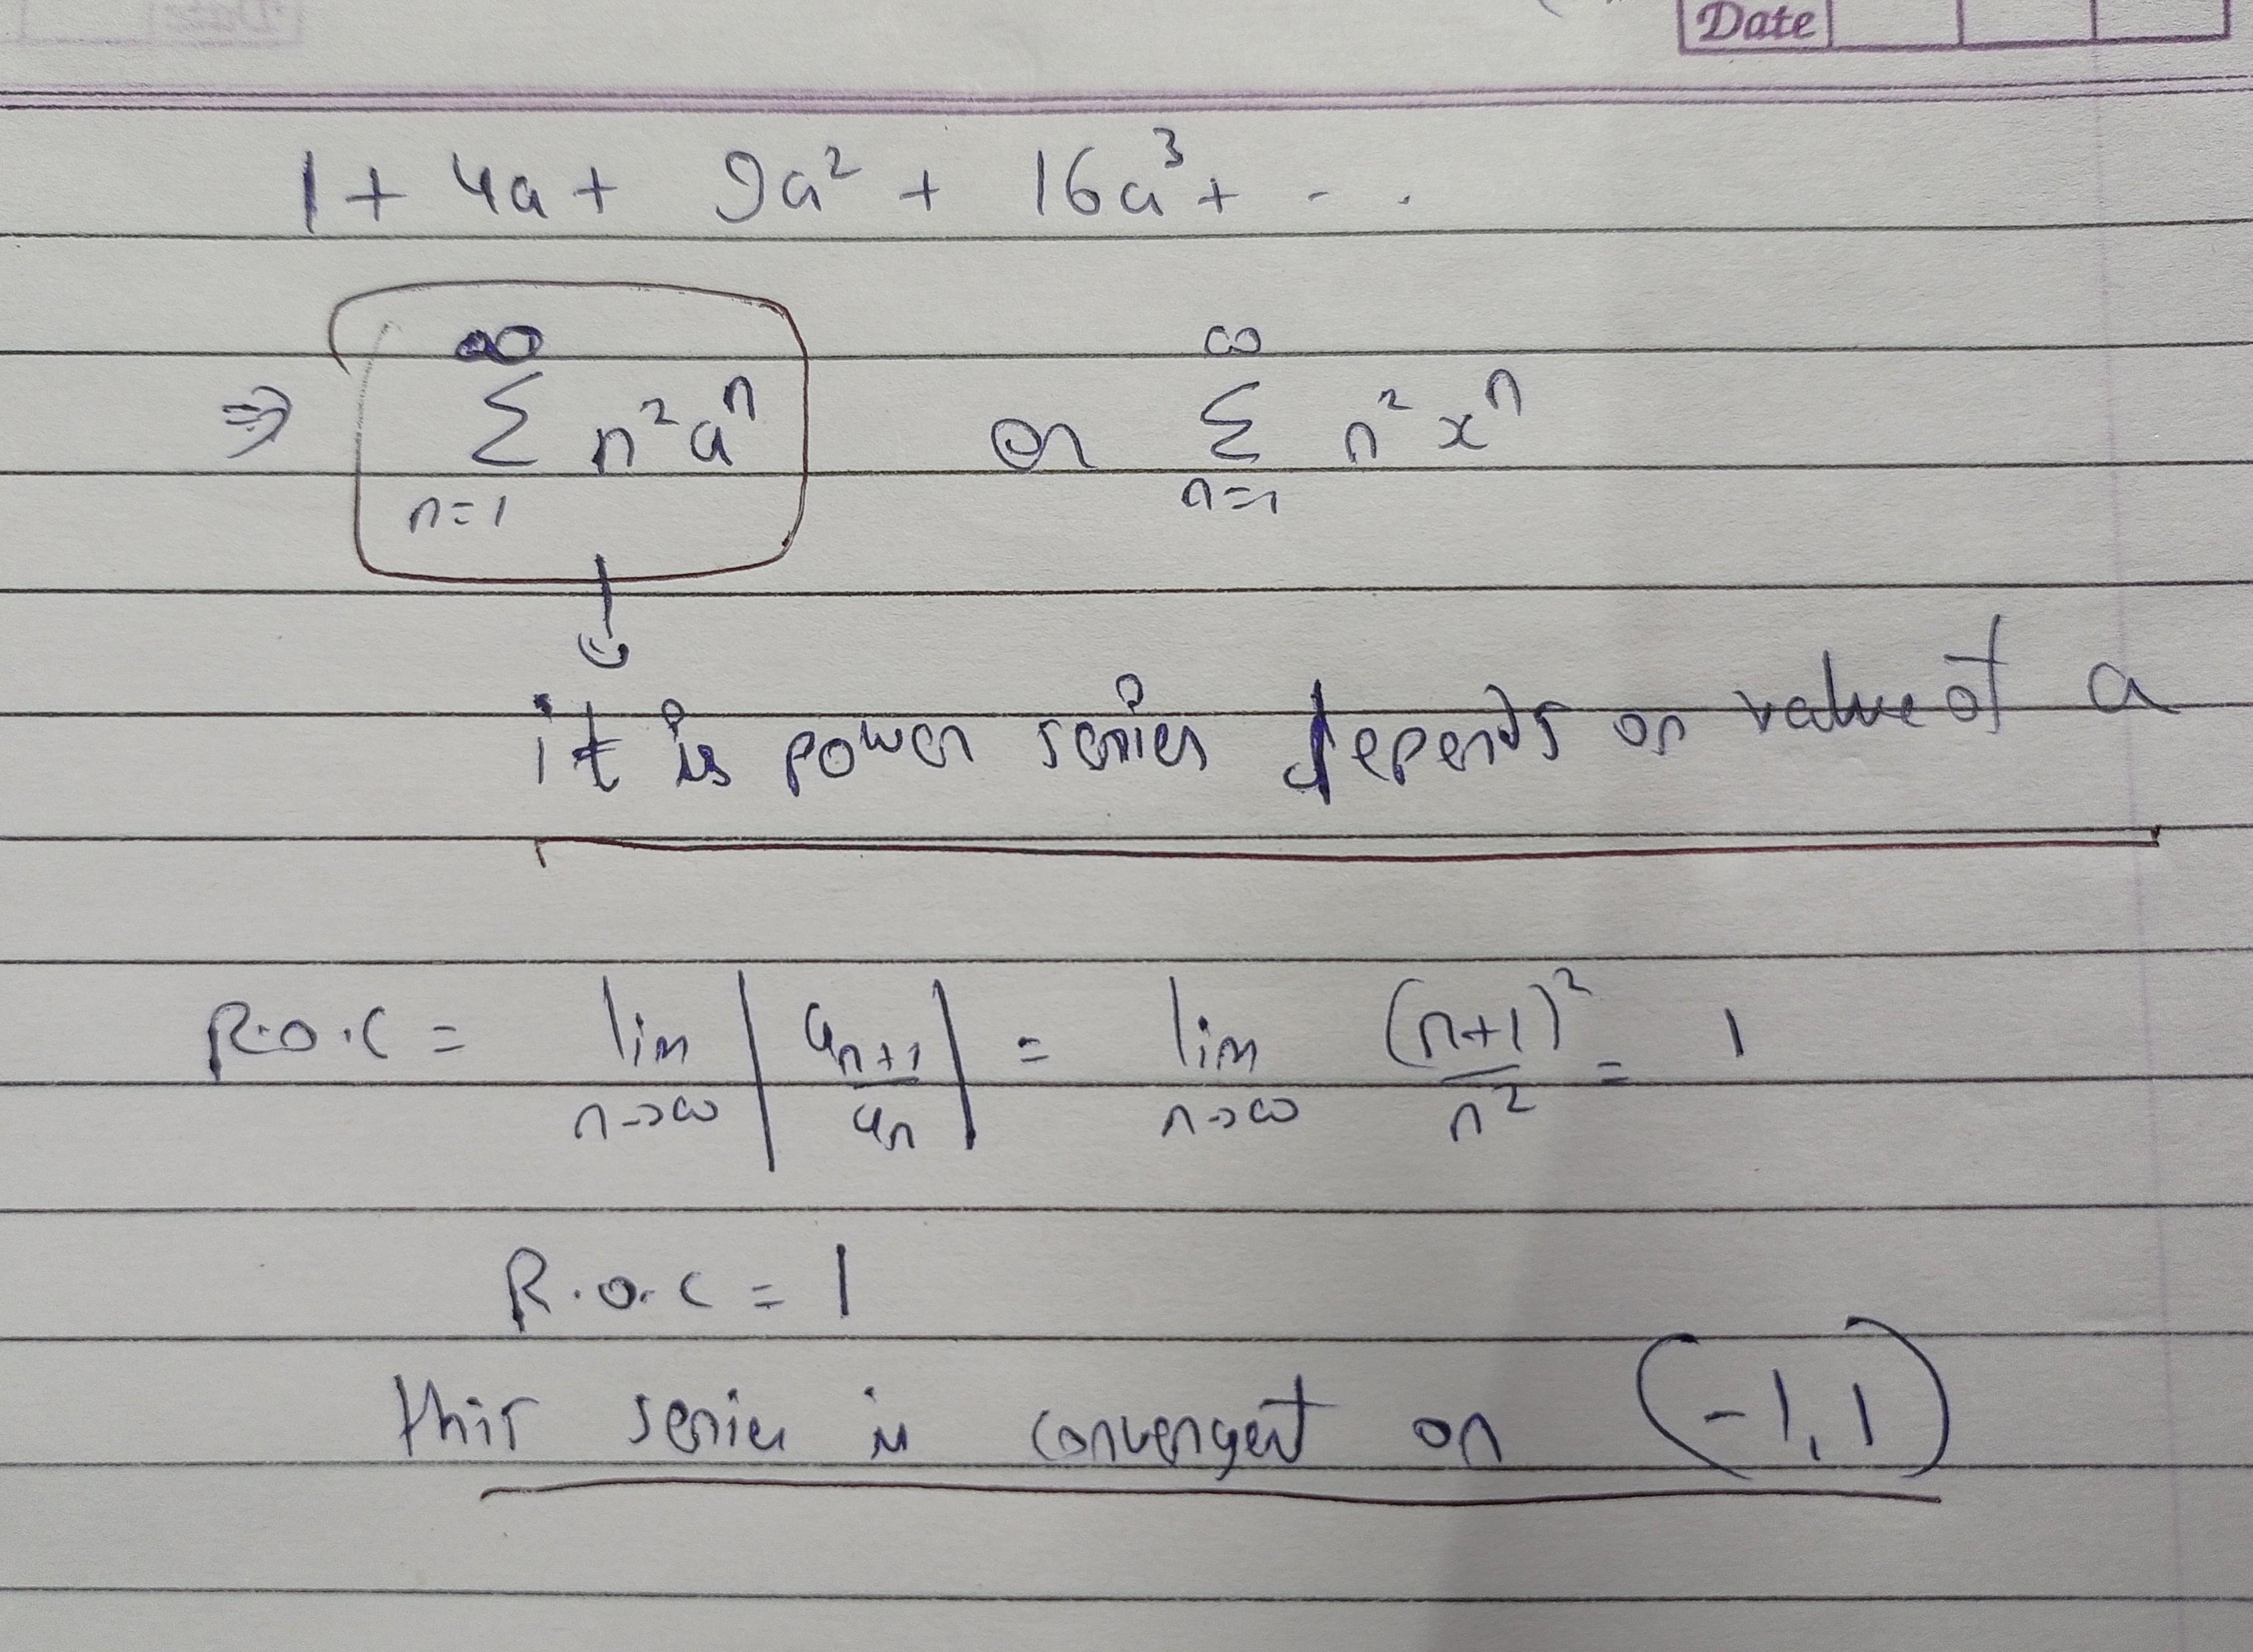 Date
1 + 4a + 9a² + 16a³ + - - .
⇒ ∞∑n=1 n²aⁿ or ∞∑n=1 n²xⁿ
it is power series depends on value of a
R.O.C = lim n→∞ |aₙ₊₁/aₙ| = lim n→∞ (n+1)²/n² = 1
R.O.C = 1
this series is convergent on (-1, 1)